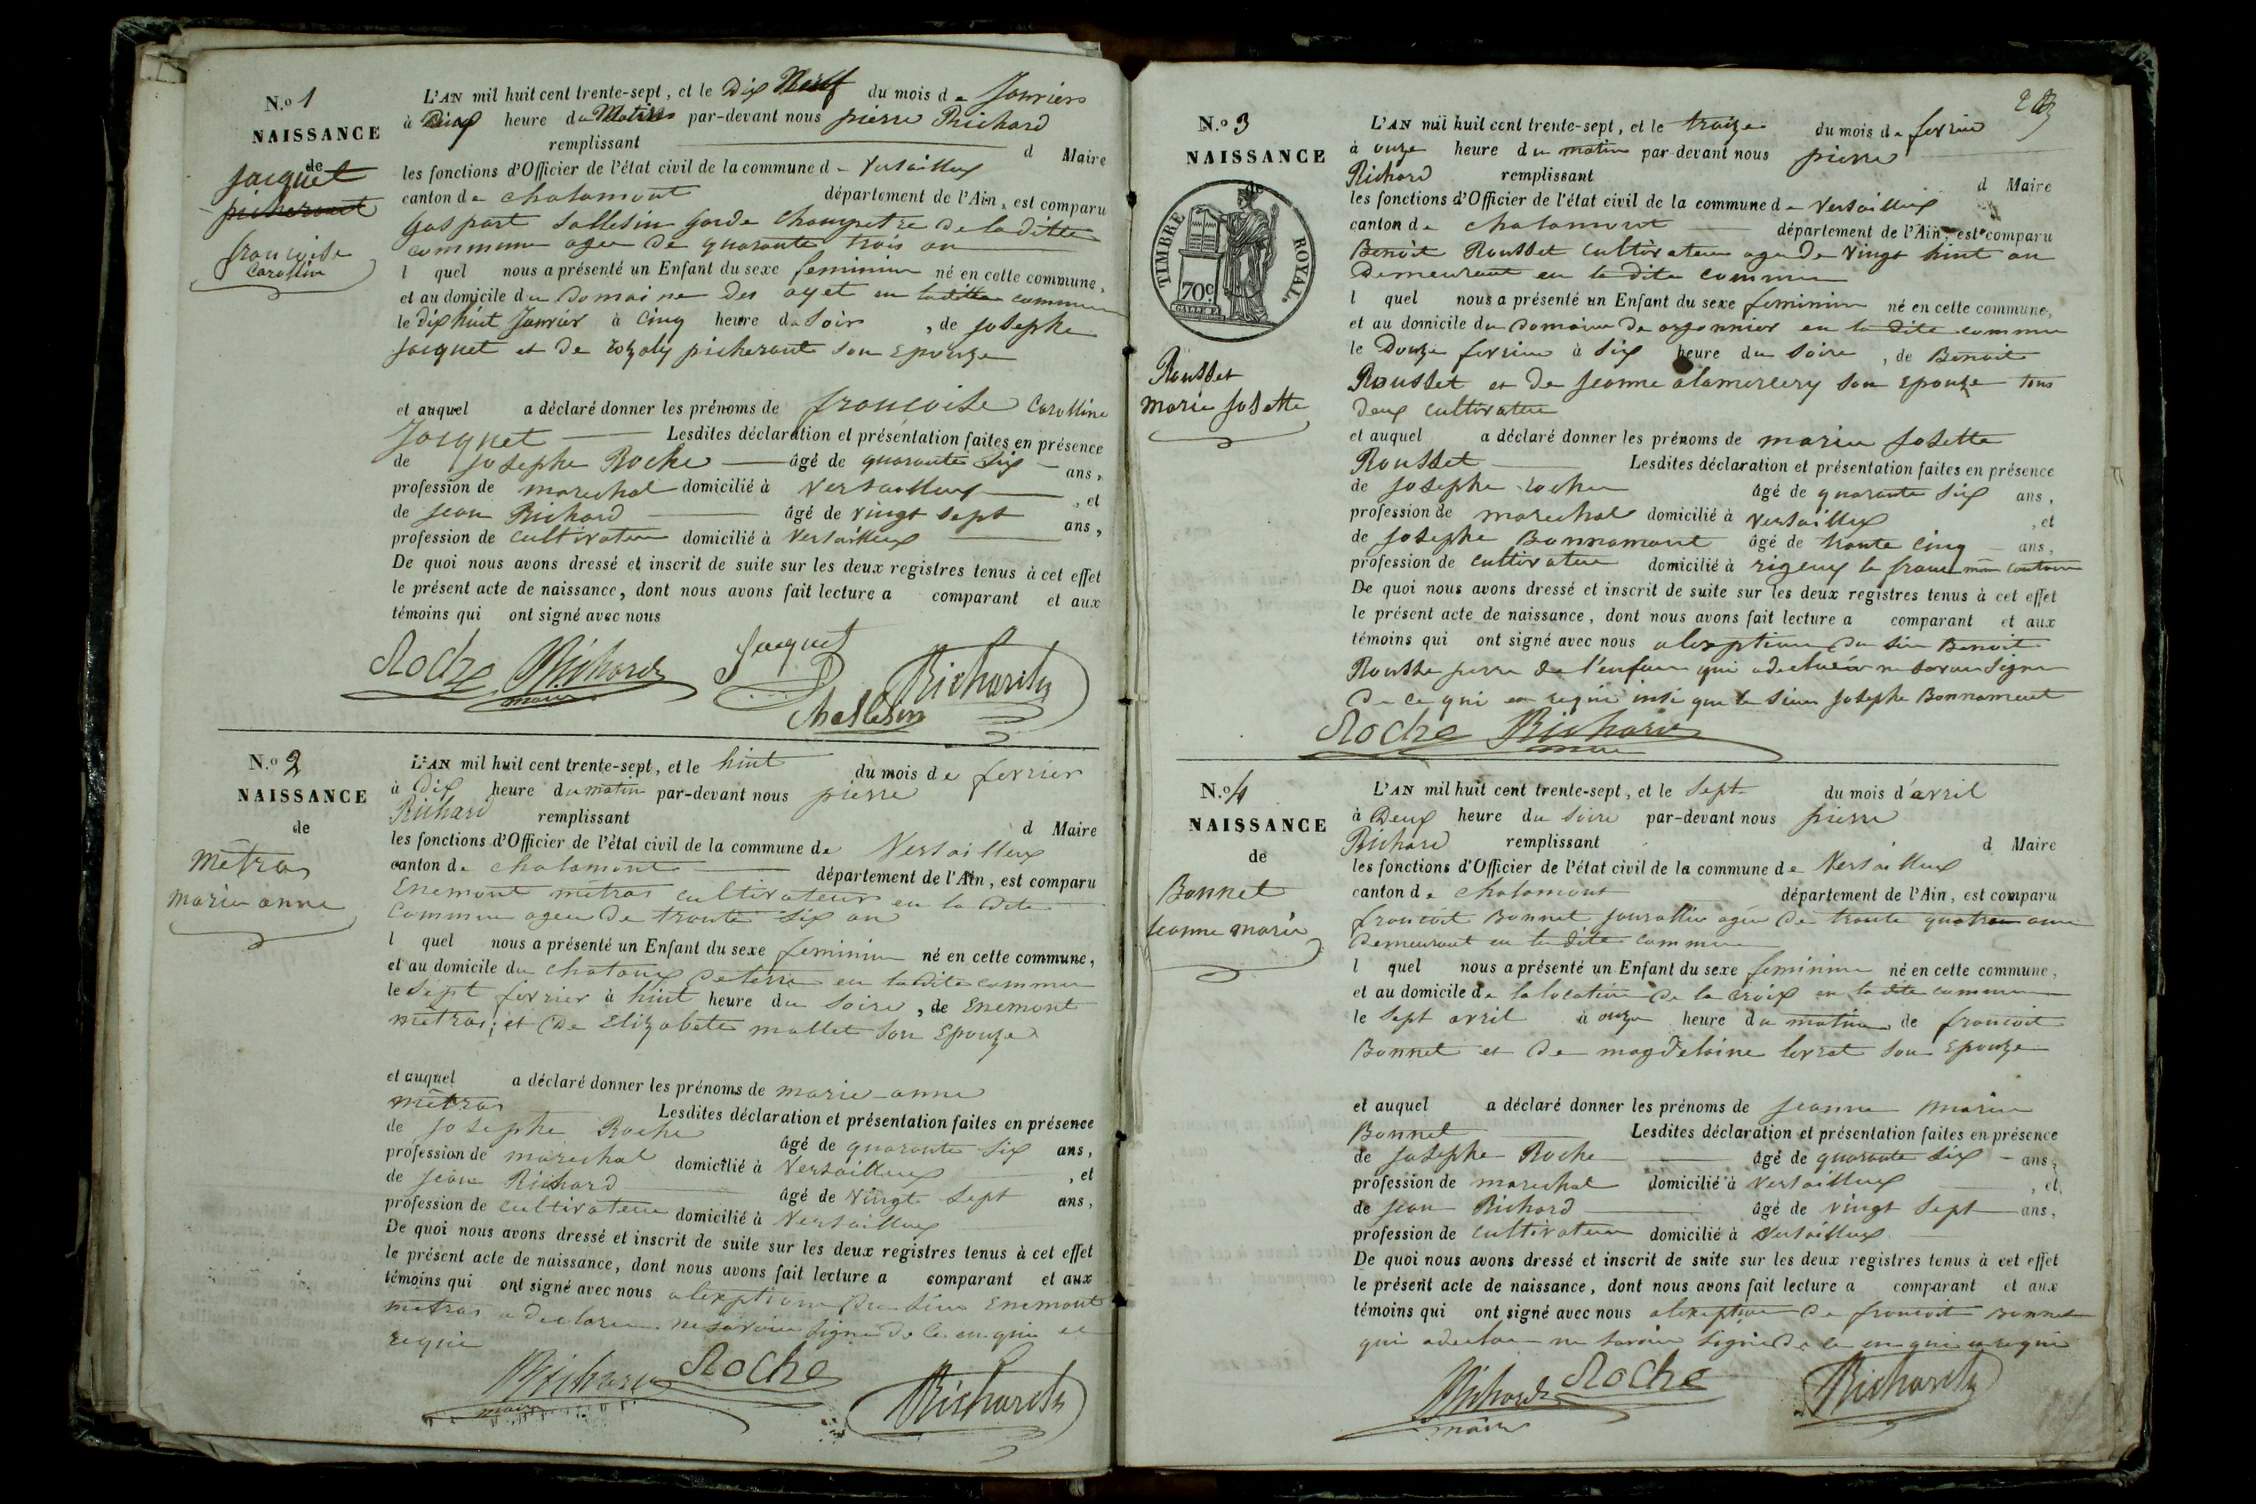 N.o 1
NAISSANCE
de
Jacquet
picherant
francoise
Carolline
L'AN mil huit cent trente-sept, et le Dix Neuf du mois de Janviers
à heure du Matin par-devant nous pierre Richard
remplissant d Maire
les fonctions d'Officier de l'état civil de la commune de Versailleux
canton de chalamont département de l'Ain, est comparu
Gaspart Sallesin garde champetre de la ditte
commune agee de quarante trois an
l quel nous a présenté un Enfant du sexe feminim né en cette commune,
et au domicile du Domaine des ayet en la ditte commune
le dix huit Janvier à Cinq heure du Soir, de Josephe
Jacquet et de rozaly picherant son Epouze
et auquel a déclaré donner les prénoms de francoise Carolline
Jacquet Lesdites déclaration et présentation faites en présence
de Josephe Roche âgé de quarante Six ans,
profession de marechal domicilié à Versailleux, et
de Jean Richard âgé de vingt Sept ans,
profession de cultivateur domicilié à Versailleux
De quoi nous avons dressé et inscrit de suite sur les deux registres tenus à cet effet
le présent acte de naissance, dont nous avons fait lecture a comparant et aux
témoins qui ont signé avec nous
Roche Richard Jacquet Richard
maire
N.o 2
NAISSANCE
de
mêtras
marie anne
L'AN mil huit cent trente-sept, et le huit du mois de fevrier
à Dix heure du matin par-devant nous pierre
Richard remplissant d Maire
les fonctions d'Officier de l'état civil de la commune de Versailleux
canton de chalamont département de l'Ain, est comparu
Enemont mêtras cultivateur en la dite
Commune agee de trante Six an
l quel nous a présenté un Enfant du sexe feminim né en cette commune,
et au domicile du chataux de terre en la dite commune
le Sept fevrier à huit heure du Soire, de Enemont
mêtras; et de Elizabete mallet Son Epouze
et auquel a déclaré donner les prénoms de marie anne
mêtras Lesdites déclaration et présentation faites en présence
de Josephe Roche âgé de quarante Six ans,
profession de marechal domicilié à Versailleux, et
de Jean Richard âgé de Vingt Sept ans,
profession de cultivateur domicilié à Versailleux
De quoi nous avons dressé et inscrit de suite sur les deux registres tenus à cet effet
le présent acte de naissance, dont nous avons fait lecture a comparant et aux
témoins qui ont signé avec nous alexption du Sieur Enemont
mêtras a declaree ne savoire signe de ce en qui et
requie
Richard Roche Richard
maire
N.o 3
NAISSANCE
de
TIMBRE ROYAL.
70c
Rousset
marie Josette
L'AN mil huit cent trente-sept, et le traize du mois de fevrier
à onze heure du matin par-devant nous pierre
Richard remplissant d Maire
les fonctions d'Officier de l'état civil de la commune de Versailleux
canton de chalamont département de l'Ain, est comparu
Benoit Rousset cultivateur age de Vingt huit an
Demeurant en la dite commune
l quel nous a présenté un Enfant du sexe feminim né en cette commune,
et au domicile du Domaine de en la dite commune
le Douze fevrier à Six heure du Soire, de Benoit
Rousset et de Jeanne alamercery son Epouze tous
Deux cultivateur
et auquel a déclaré donner les prénoms de marie Josette
Rousset Lesdites déclaration et présentation faites en présence
de Josephe roche âgé de quarante Six ans,
profession de marechal domicilié à Versailleux, et
de Josephe Bonnamant âgé de trante Cinq ans,
profession de cultivateur domicilié à rigeux le franc
De quoi nous avons dressé et inscrit de suite sur les deux registres tenus à cet effet
le présent acte de naissance, dont nous avons fait lecture a comparant et aux
témoins qui ont signé avec nous alexption du Sieu Benoit
Rousset perre de l'enfant qui a declaré ne savoir signe
De ce qui en requi insi que le Sieur Josephe Bonnamant
Roche Richard
maire
N.o 4
NAISSANCE
de
Bonnet
Jeanne marie
L'AN mil huit cent trente-sept, et le Sept du mois d'avril
à Deux heure du Soire par-devant nous pierre
Richard remplissant d Maire
les fonctions d'Officier de l'état civil de la commune de Versailleux
canton de chalamont département de l'Ain, est comparu
francoit Bonnet Journallier agee de trante quatre ans
Demeurant en la dite commune
l quel nous a présenté un Enfant du sexe feminim né en cette commune,
et au domicile de la locature de la croix en la dite commune
le Sept avril à onze heure du matin, de francoit
Bonnet et de magdelaine Son Epouze
et auquel a déclaré donner les prénoms de Jeanne marie
Bonnet Lesdites déclaration et présentation faites en présence
de Josephe Roche âgé de quarante Six ans,
profession de marechal domicilié à Versailleux, et
de Jean Richard âgé de vingt Sept ans,
profession de cultivateur domicilié à Versailleux
De quoi nous avons dressé et inscrit de suite sur les deux registres tenus à cet effet
le présent acte de naissance, dont nous avons fait lecture a comparant et aux
témoins qui ont signé avec nous alexption de francoit Bonnet
qui a declare ne savoire signe de ce en qui a requie
Richard Roche Richard
maire